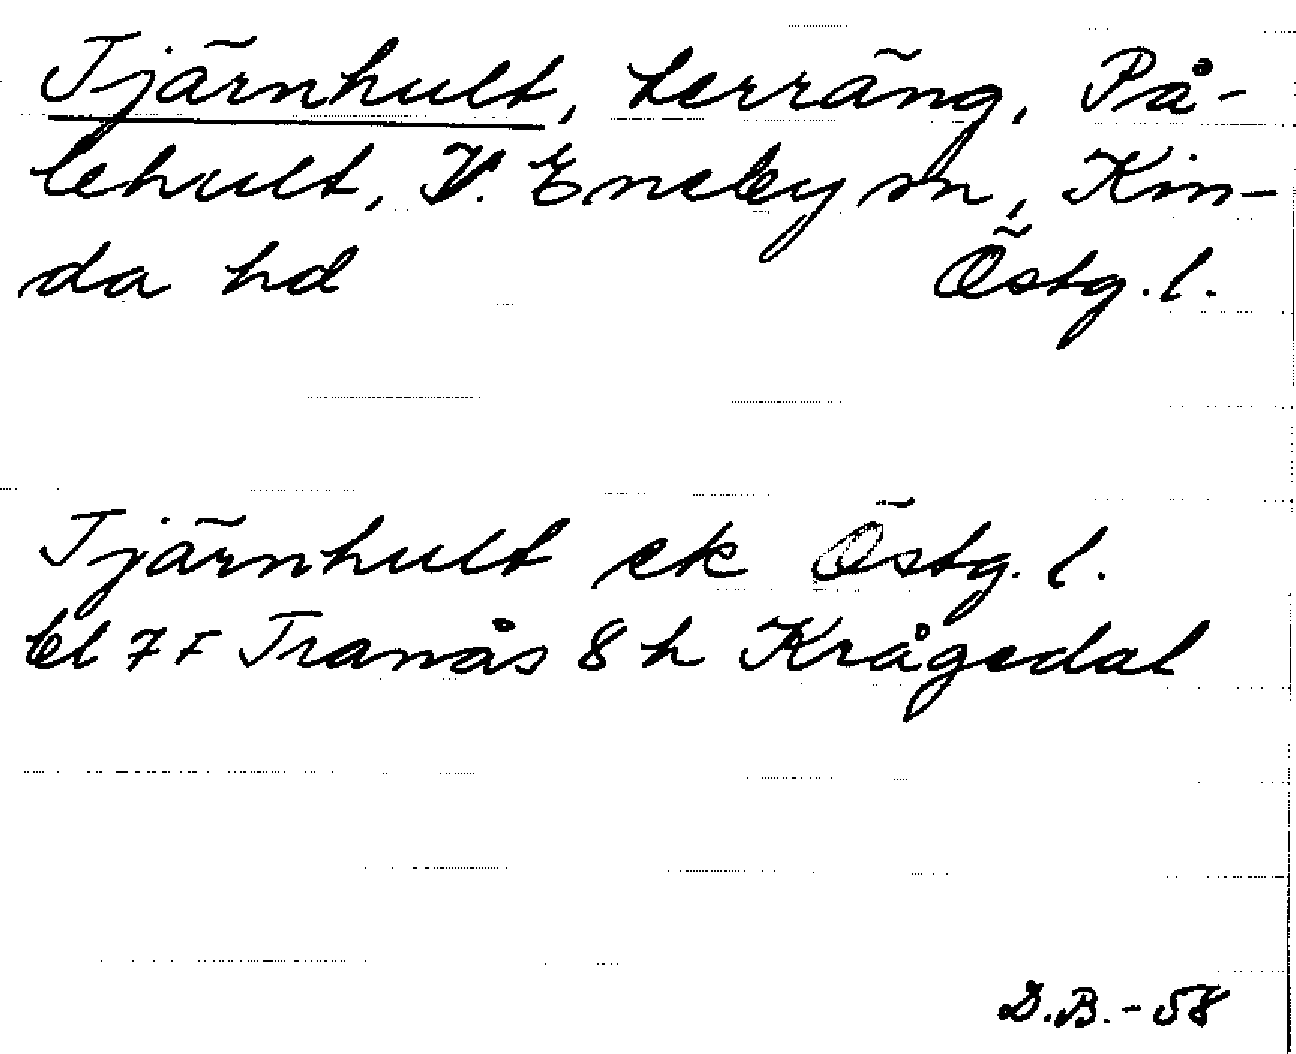 Tjärnhult, terräng, På-
lehult, V. Eneby sn, Kin-
da hd Östg. l.
Tjärnhult ek Östg. l.
bl 7 F Tranås 8 h Krågedal
D.B. - 58